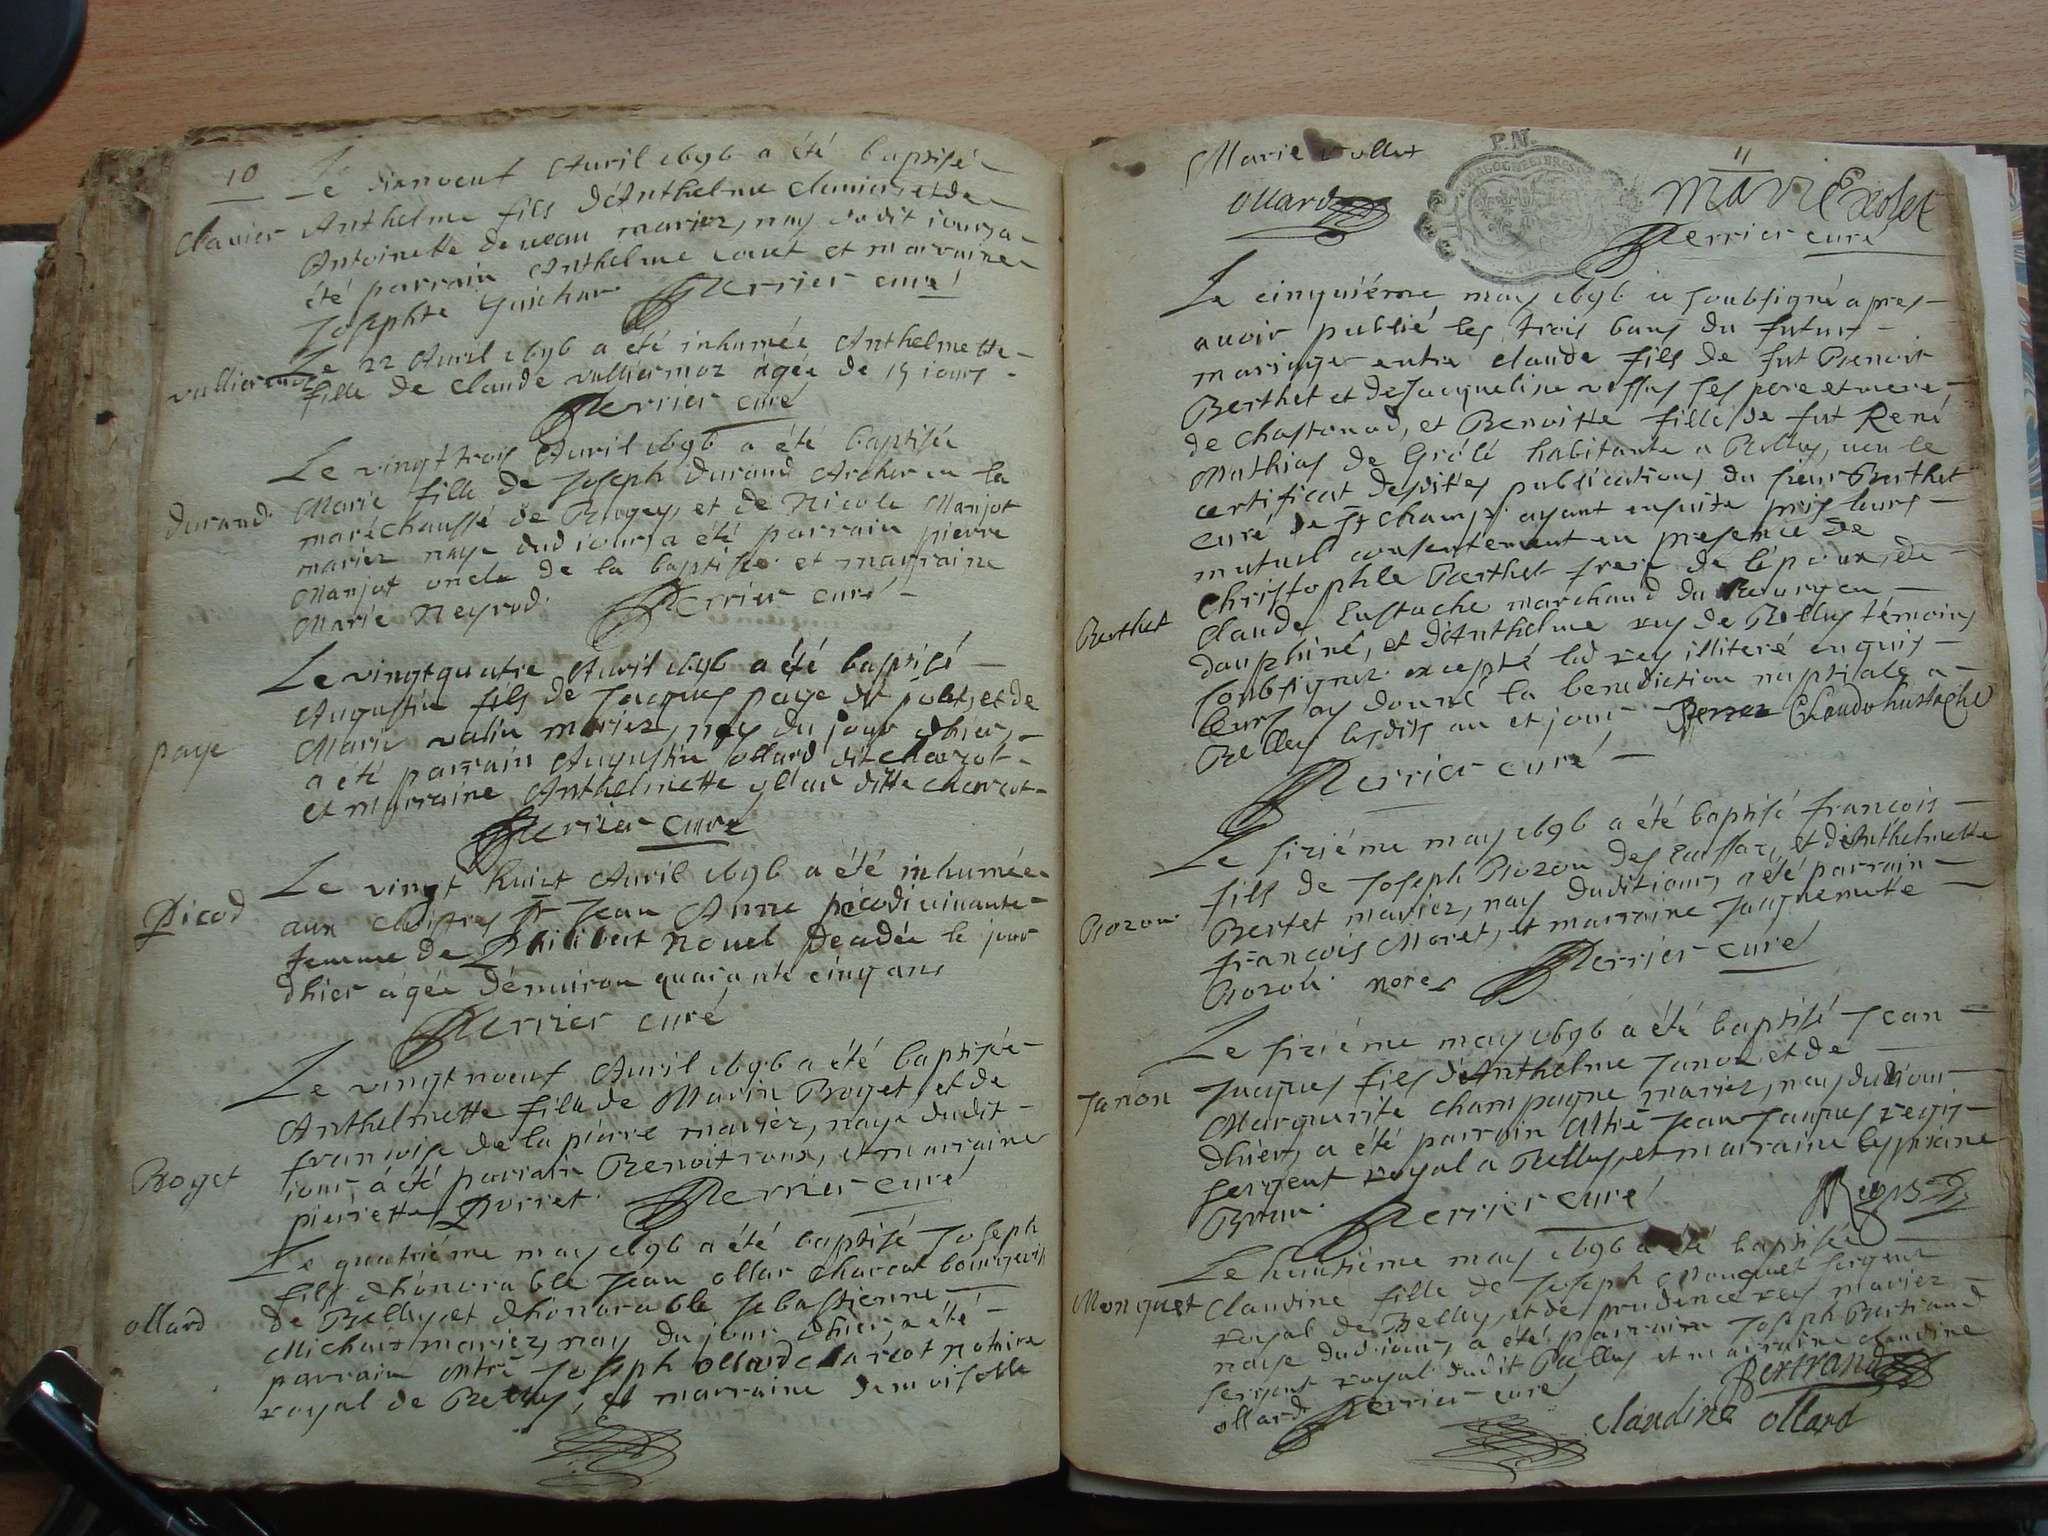 10
Le dixnoeuf Avril 1696 a été baptisé
Clavier
Anthelme fils d'Anthelme Clavier et de
Antoinette deveau mariez, nay dudit jour, a
été parrain Anthelme et marraine
Josephte Guichar Perrier curé
Le 22 Avril 1696 a été inhumée Anthelmette
vulliermoz
fille de Claude vulliermoz agée de 15 jours
Perrier curé
Le vingttrois Avril 1696 a été baptisée
durand
Marie fille de Joseph durand Archer en la
maréchaussé de Bugey, et de Nicole Manjot
mariez naye dud jour, a été parrain pierre
Manjot oncle de la baptisée et marraine
Marie Neyrod Perrier curé
Le vingtquatre Avril 1696 a été baptisé
Augustin fils de Jacques page dit et de
page
Marie valin mariez, nay du jour dhier,
a été parrain Augustin ollard dit charcot
et marraine Anthelmette ditte charcot
Perrier curé
Le vingt huict Avril 1696 a été inhumée
Picod
aux St Jean Anne picod vivante
femme de Philibert Novel decedée le jour
dhier agée d'environ quarante cinq ans
Perrier curé
Le vingtnoeuf Avril 1696 a été baptisée
Anthelmette fille de Marin Boget, et de
francoise de la pierre mariez, naye dudit
Boget
jour, a été parrain Benoit roux, et marraine
pierrette Perrier curé
Le quatriéme may 1696 a été baptisé Joseph
fils dhonorable Jean ollar charcot bourgeois
ollard
de Belley, et dhonorable Sebastienne
Michaud mariez, nay du jour dhier, a été
parrain Mtre Joseph ollard charcot notaire
royal de Belley, et marraine demoiselle
Marie
11
ollard
Perrier curé
Le cinquiéme may 1696 je soubsigné apres
avoir publié les trois bans du futur
mariage entre claude fils de fut Benoit
Berthet et de Jacqueline ses pere et mere
de Chastonod, et Benoitte fille de fut René
Mathias de Grélé habitante a Belley, veu le
certificat desdites publications du sieur Berthet
curé de St Champ, ayant ensuite pris leurs
mutuel consentement en presence de
Berthet
Christophle Berthet frere de l'époux, de
Claude Eustache marchand du en
dauphiné, et d'Anthelme rey de Belley témoins
soubsignez excepté led rey illiteré enquis
leurs ay donné la benediction nuptiale a
Belley lesdits an et jour Claude hustache
Perrier curé
Le siziéme may 1696 a été baptisé francois
fils de Joseph Bozon des et d'Anthelmette
Bozon
Bertet mariez, nay dudit jour, a été parrain
francois Moret, et marraine Jaquemette
Bozon mores Perrier curé
Le siziéme may 1696 a été baptisé Jean
Janon
Jacques fils d'Anthelme Janon et de
Marguerite champagne mariez, nay du jour
dhier, a été parrain Mtre Jean Jaques regis
sergent royal a Belley, et marraine
Brun Perrier curé Regis
Le huitiéme may 1696 a été baptisée
Monquet
Claudine fille de Joseph Monquet sergent
royal de Belley, et de prudence rey mariez
naye dud jour, a été parrain Joseph Bertrand
sergent royal dudit Belley et marraine claudine
ollard Perrier curé Bertrand
claudine ollard